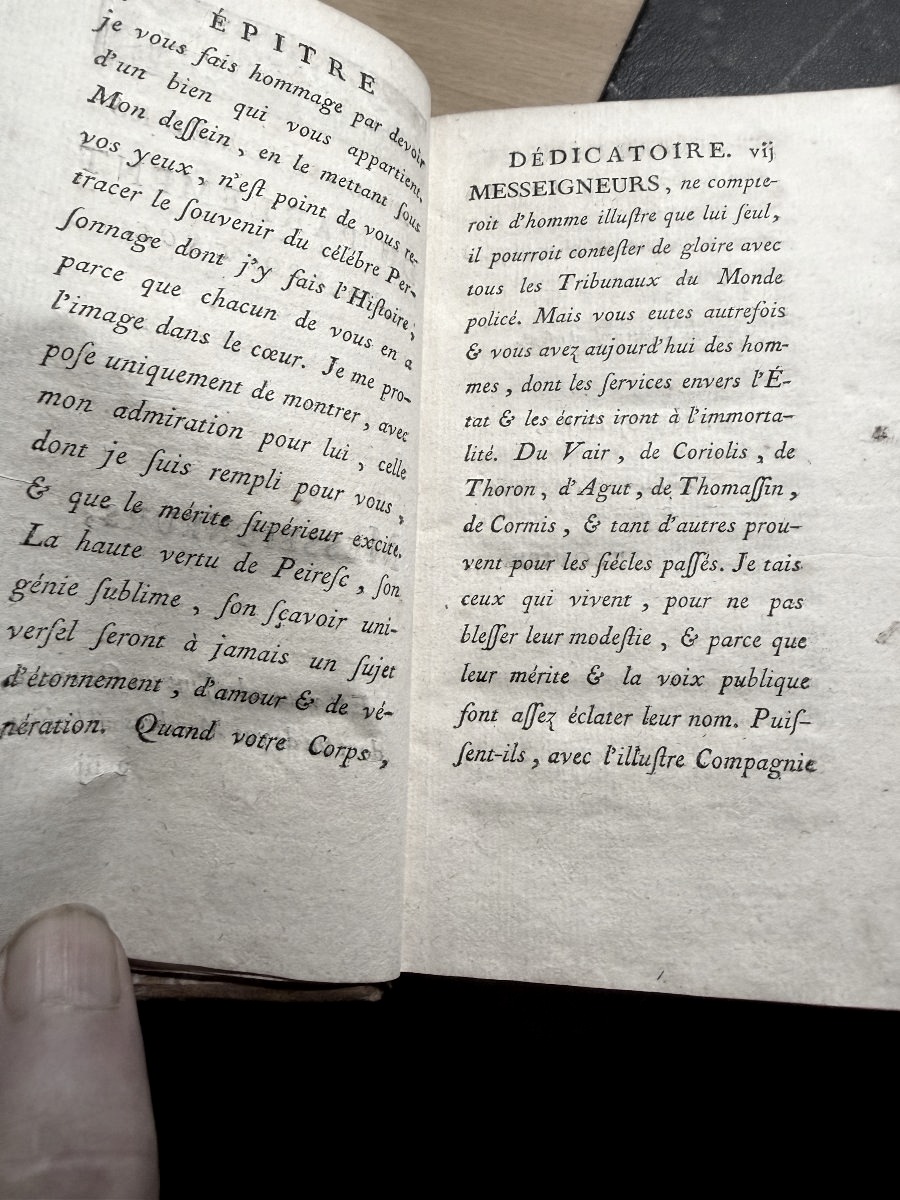 ÉPITRE
je vous fais hommage par devoir
d'un bien qui vous appartient.
Mon deſſein, en le mettant ſous
vos yeux, n'eſt point de vous re-
tracer le ſouvenir du célébre Per-
ſonnage dont j'y fais l'Hiſtoire,
parce que chacun de vous en a
l'image dans le cœur. Je me pro-
poſe uniquement de montrer, avec
mon admiration pour lui, celle
dont je ſuis rempli pour vous,
& que le mérite ſupérieur excite.
La haute vertu de Peireſc, ſon
génie ſublime, ſon ſçavoir uni-
verſel ſeront à jamais un ſujet
d'étonnement, d'amour & de vé-
nération. Quand votre Corps,
DÉDICATOIRE. vij
MESSEIGNEURS, ne compte-
roit d'homme illuſtre que lui ſeul,
il pourroit conteſter de gloire avec
tous les Tribunaux du Monde
policé. Mais vous eutes autrefois
& vous avez aujourd'hui des hom-
mes, dont les ſervices envers l'É-
tat & les écrits iront à l'immorta-
lité. Du Vair, de Coriolis, de
Thoron, d'Agut, de Thomaſſin,
de Cormis, & tant d'autres prou-
vent pour les ſiécles paſſés. Je tais
ceux qui vivent, pour ne pas
bleſſer leur modeſtie, & parce que
leur mérite & la voix publique
font aſſez éclater leur nom. Puiſ-
ſent-ils, avec l'illuſtre Compagnie